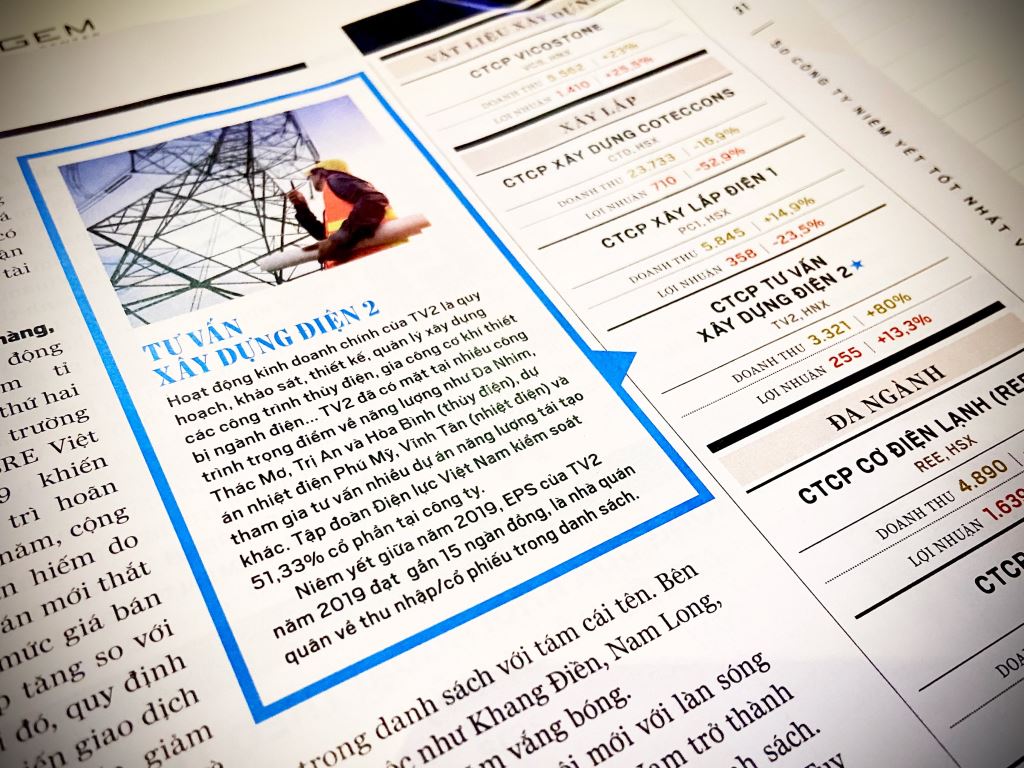 GEM
TƯ VẤN
XÂY DỰNG ĐIỆN 2
Hoạt động kinh doanh chính của TV2 là quy
hoạch, khảo sát, thiết kế, quản lý xây dựng
các công trình thủy điện, gia công cơ khí thiết
bị ngành điện... TV2 đã có mặt tại nhiều công
trình trọng điểm về năng lượng như Đa Nhim,
Thác Mơ, Trị An và Hòa Bình (thủy điện), dự
án nhiệt điện Phú Mỹ, Vĩnh Tân (nhiệt điện) và
tham gia tư vấn nhiều dự án năng lượng tái tạo
khác. Tập đoàn Điện lực Việt Nam kiểm soát
51,33% cổ phần tại công ty.
Niêm yết giữa năm 2019, EPS của TV2
năm 2019 đạt gần 15 ngàn đồng, là nhà quán
quân về thu nhập/cổ phiếu trong danh sách.
có
ần
tài
hàng,
động
m tỉ
thứ hai
trường
RE Việt
9 khiến
trì hoãn
năm, cộng
n hiếm do
án mới thắt
mức giá bán
tăng so với
đó, quy định
ến giao dịch
giảm
trong danh sách với tám cái tên. Bên
ộc như Khang Điền, Nam Long,
m vắng bóng.
ôi mới với làn sóng
Nam trở thành
sách.
VẬT LIỆU XÂY DỰNG
CTCP VICOSTONE
VCS, HNX
DOANH THU 5.562 | +23%
LỢI NHUẬN 1.410 | +25,5%
XÂY LẮP
CTCP XÂY DỰNG COTECCONS
CTD, HSX
DOANH THU 23.733 | -16,9%
LỢI NHUẬN 710 | -52,9%
CTCP XÂY LẮP ĐIỆN 1
PC1, HSX
DOANH THU 5.845 | +14,9%
LỢI NHUẬN 358 | -23,5%
CTCP TƯ VẤN
XÂY DỰNG ĐIỆN 2★
TV2, HNX
DOANH THU 3.321 | +80%
LỢI NHUẬN 255 | +13,3%
ĐA NGÀNH
CTCP CƠ ĐIỆN LẠNH (REE
REE, HSX
DOANH THU 4.890
LỢI NHUẬN 1.639
CTCP
DOA
31
50 CÔNG TY NIÊM YẾT TỐT NHẤT V